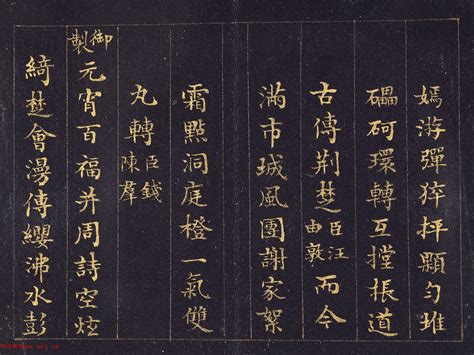 嫣游彈猝抨顆勻堆
礧砢環轉互摚棖道
古傳荆楚臣汪由敦而今
滿市珹風團謝家絮
霜點洞庭橙一氣雙
丸轉臣錢陳羣
御製元宵百福并周詩空炫
綺楚會漫傳纓沸水彭